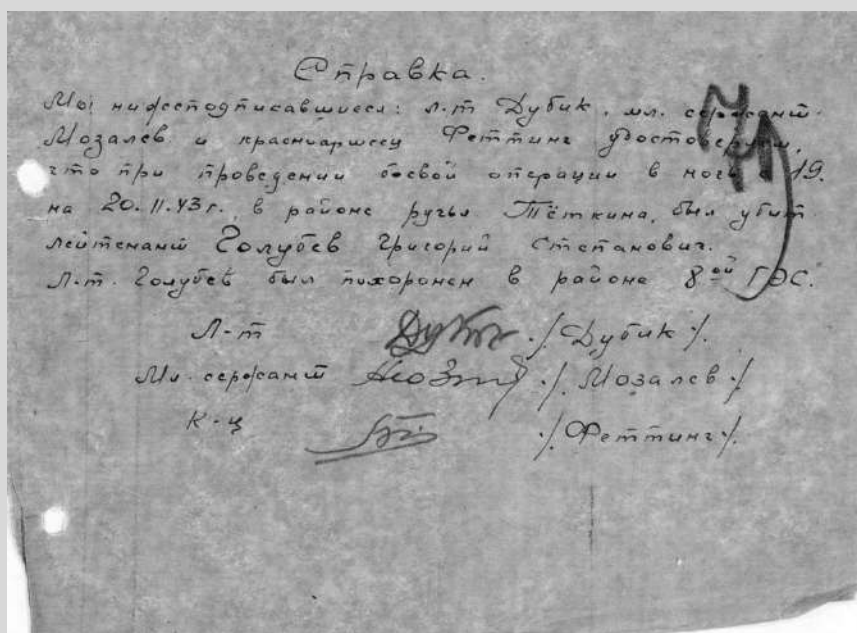 Справка.
Мы нижеподписавшиеся: л-т Дубик, мл. сержант
Мозалев и красноармеец Феттинг удостоверяем,
что при проведении боевой операции в ночь с 19.
на 20.11.43г. в районе ручья Тёткина, был убит
лейтенант Голубев Григорий Степанович.
Л-т. Голубев был похоронен в районе 8ой ГЭС.
Л-т ./Дубик/.
Мл. сержант ./Мозалев/.
К-ц ./Феттинг/.